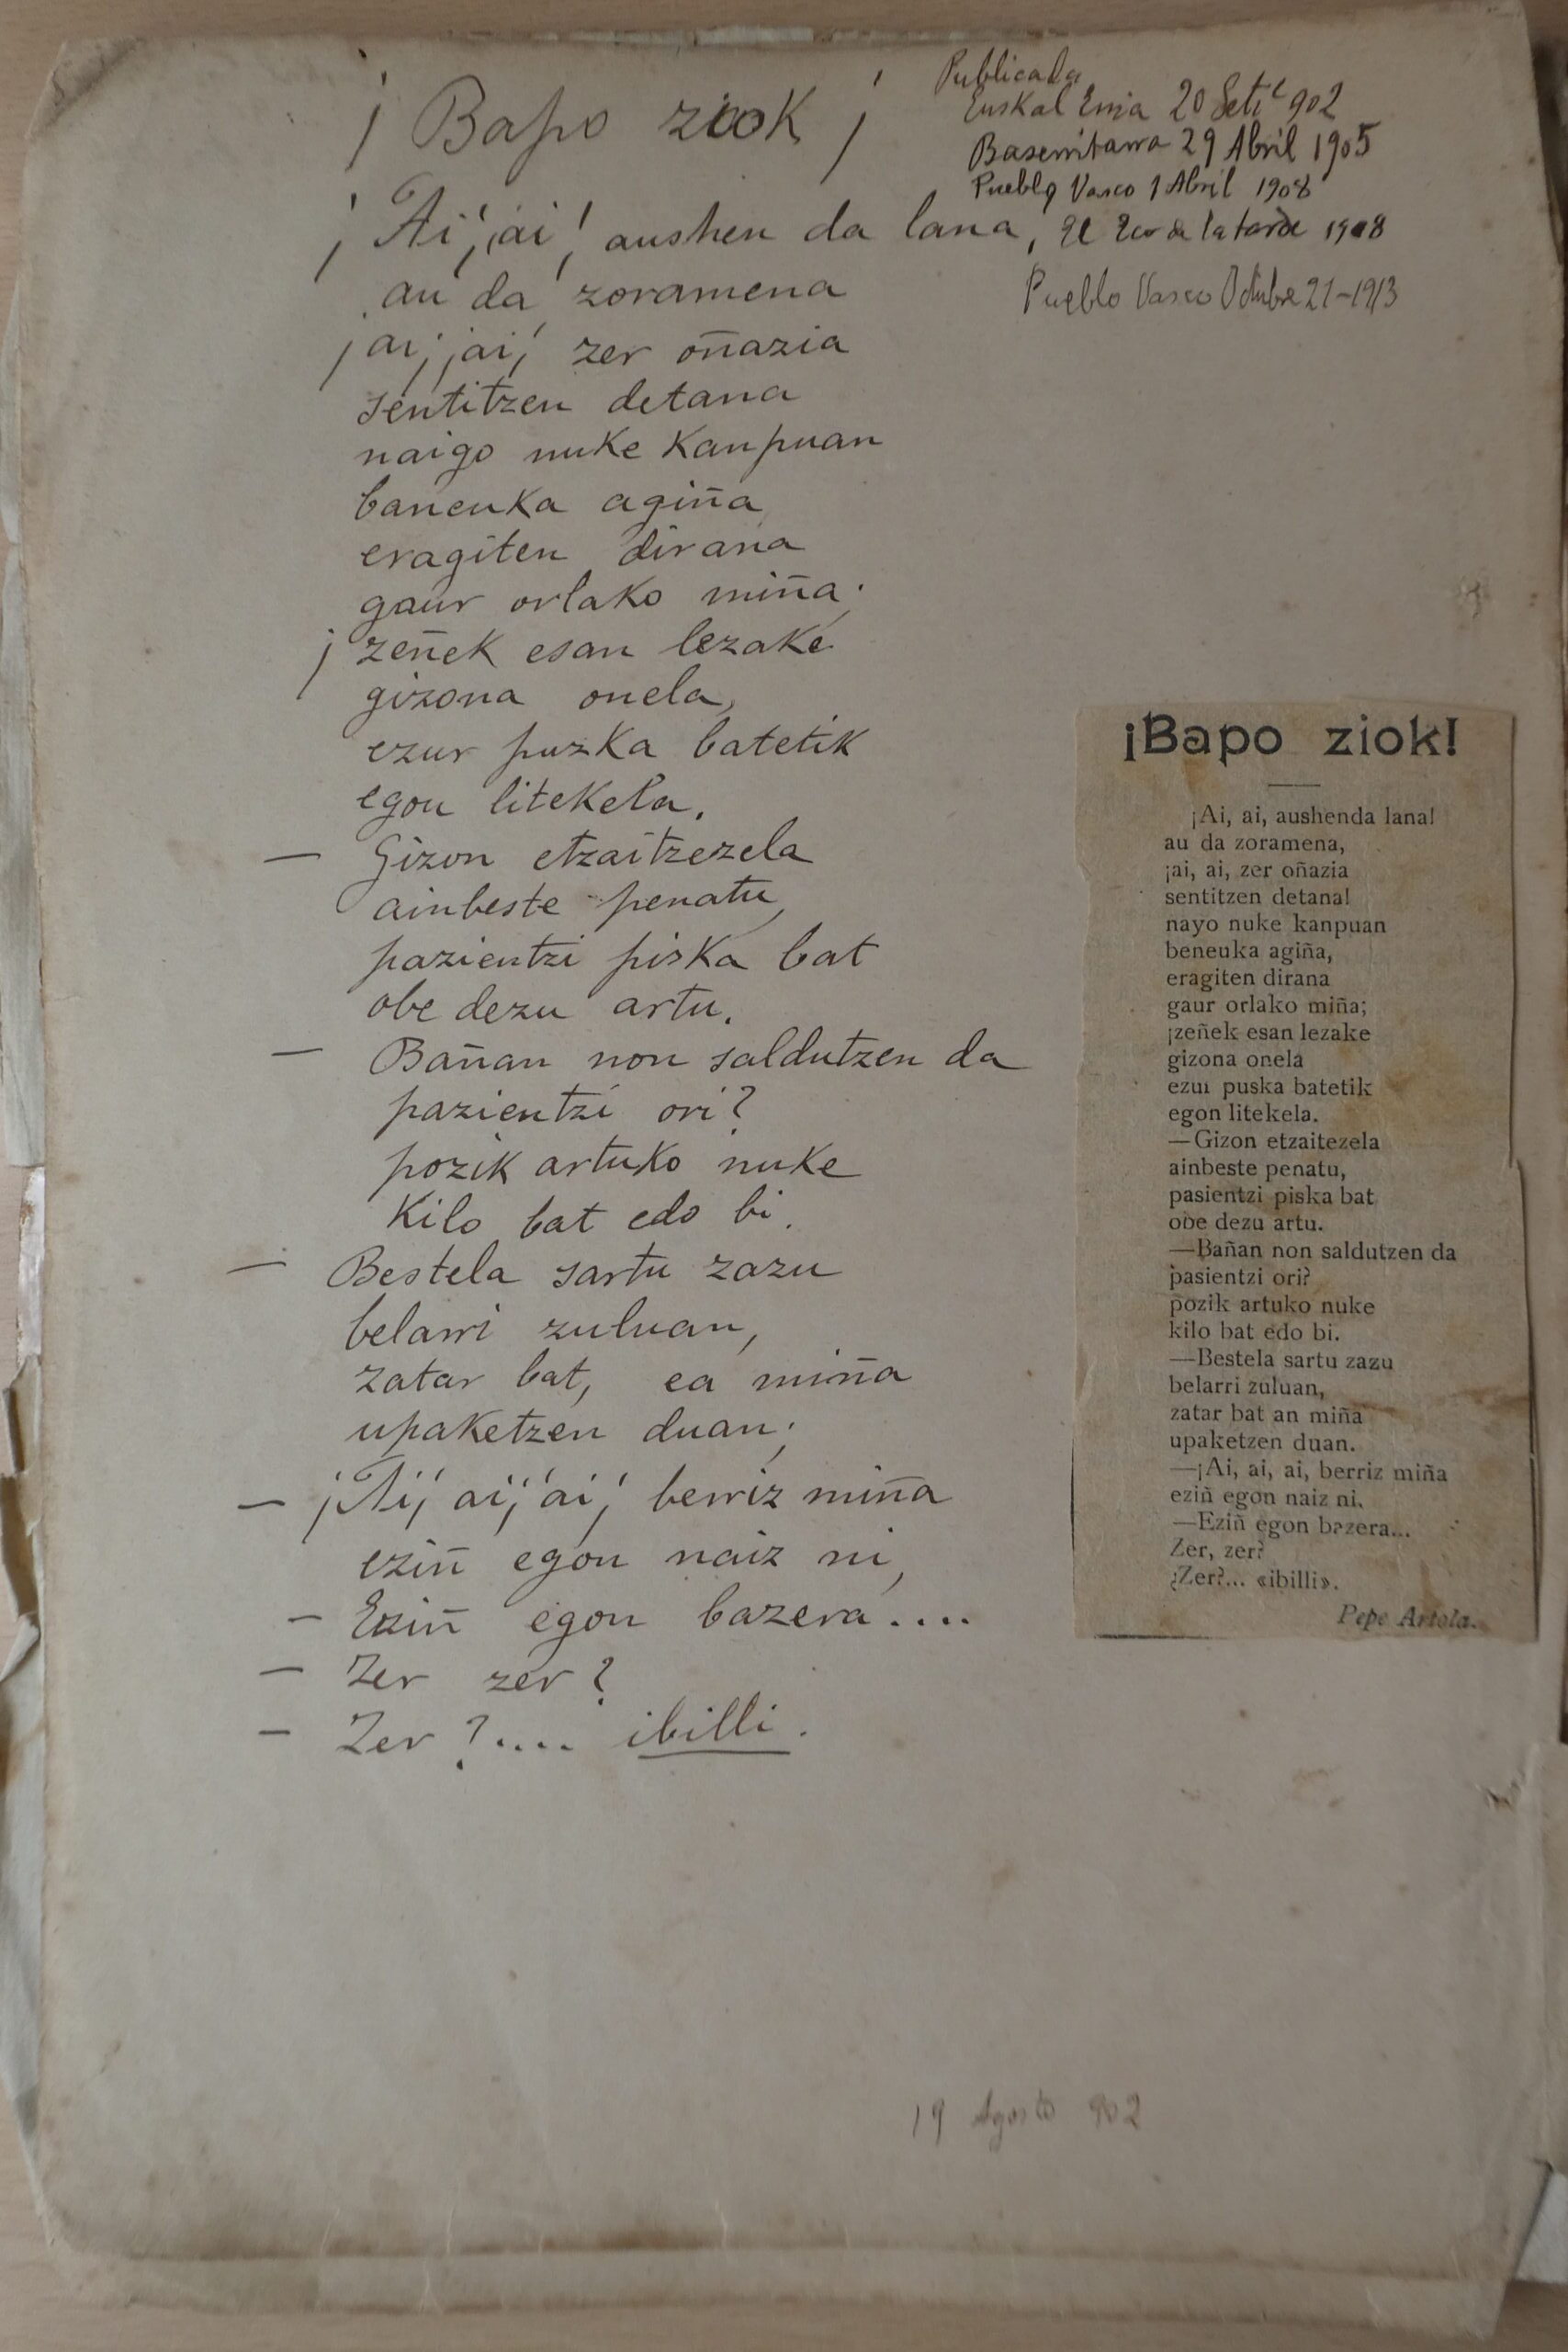 ¡Bapo ziok!
Publicada
Euskal Erria 20 Setᵉ 902
Baserritarra 29 Abril 1905
Pueblo Vasco 1 Abril 1908
¡Ai! ¡ai! aushen da lana,
El Eco de la tarde 1908
au da zoramena
Pueblo Vasco Octubre 21-1913
¡ai, ¡ai, zer oñazia
sentitzen detana
naigo nuke kanpuan
baneuka agiña
eragiten dirana
gaur orlako miña;
¡zeñek esan lezake
gizona onela,
ezur puzka batetik
egon litekela.
— Gizon etzaitzezela
ainbeste penatu,
pazientzi piska bat
obe dezu artu.
— Bañan non saldutzen da
pazientzi ori?
pozik artuko nuke
Kilo bat edo bi.
— Bestela sartu zazu
belarri zuluan,
zatar bat, ea miña
upaketzen duan;
— ¡Ai! ai! ai! berriz miña
eziñ egon naiz ni,
— Eziñ egon bazera....
— Zer zer?
— Zer?.... ibilli.
19 Agosto 902
¡Bapo ziok!
¡Ai, ai, aushenda lana!
au da zoramena,
¡ai, ai, zer oñazia
sentitzen detana!
nayo nuke kanpuan
beneuka agiña,
eragiten dirana
gaur orlako miña;
¡zeñek esan lezake
gizona onela
ezur puska batetik
egon litekela.
—Gizon etzaitezela
ainbeste penatu,
pasientzi piska bat
obe dezu artu.
—Bañan non saldutzen da
pasientzi ori?
pozik artuko nuke
kilo bat edo bi.
—Bestela sartu zazu
belarri zuluan,
zatar bat an miña
upaketzen duan.
—¡Ai, ai, ai, berriz miña
eziñ egon naiz ni.
—Eziñ egon bazera...
Zer, zer?
¿Zer?... «ibilli».
Pepe Artola.